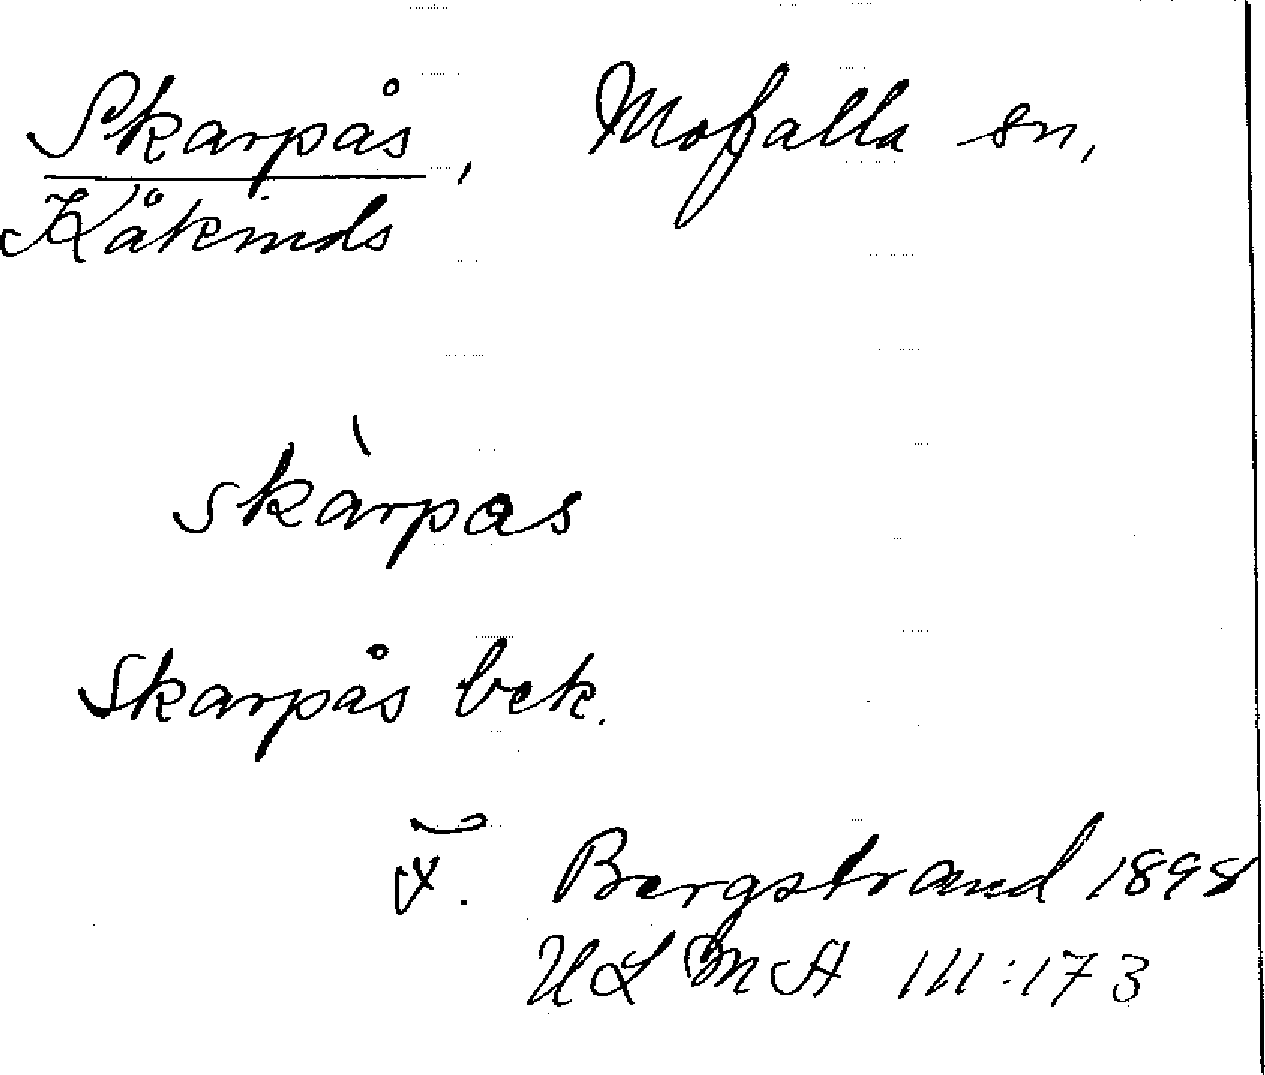 Skarpås, Mofalla sn,
Kåkinds
skàrpas
Skarpås bek.
F. Bergstrand 1898
ULMA 111:173